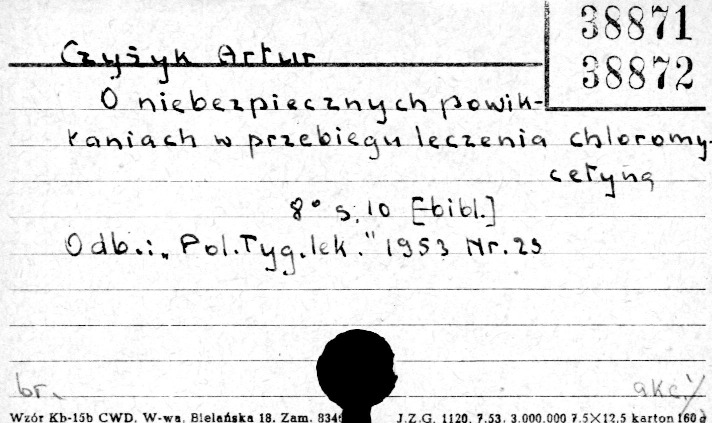 38871
38872
Czyżyk Artur
O niebezpiecznych powik-
łaniach w przebiegu leczenia chloromy-
cetyną
8° s. 10 [bibl.]
Odb.: „Pol. Tyg. lek." 1953 Nr. 23
br.
Wzór Kb-15b CWD, W-wa, Bielańska 18. Zam. J.Z.G. 1120. 7.53. 3.000.000 7.5×12.5 karton 160 g